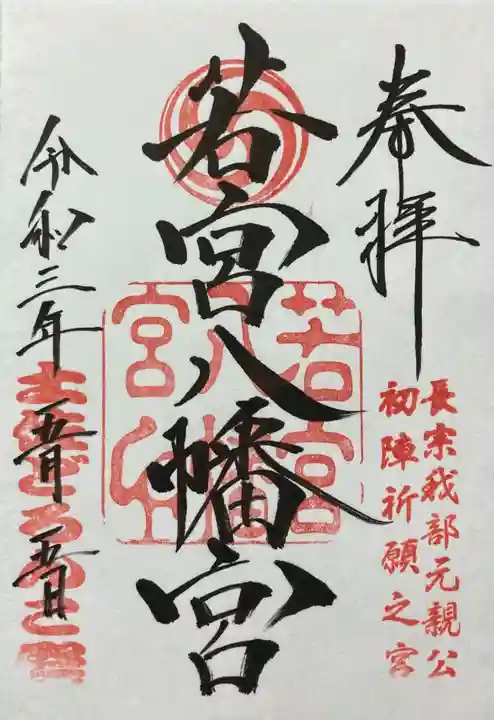 奉拝
長宗我部元親公
初陣祈願之宮
若宮八幡宮
若宮
八幡
宮印
令和三年五月五日